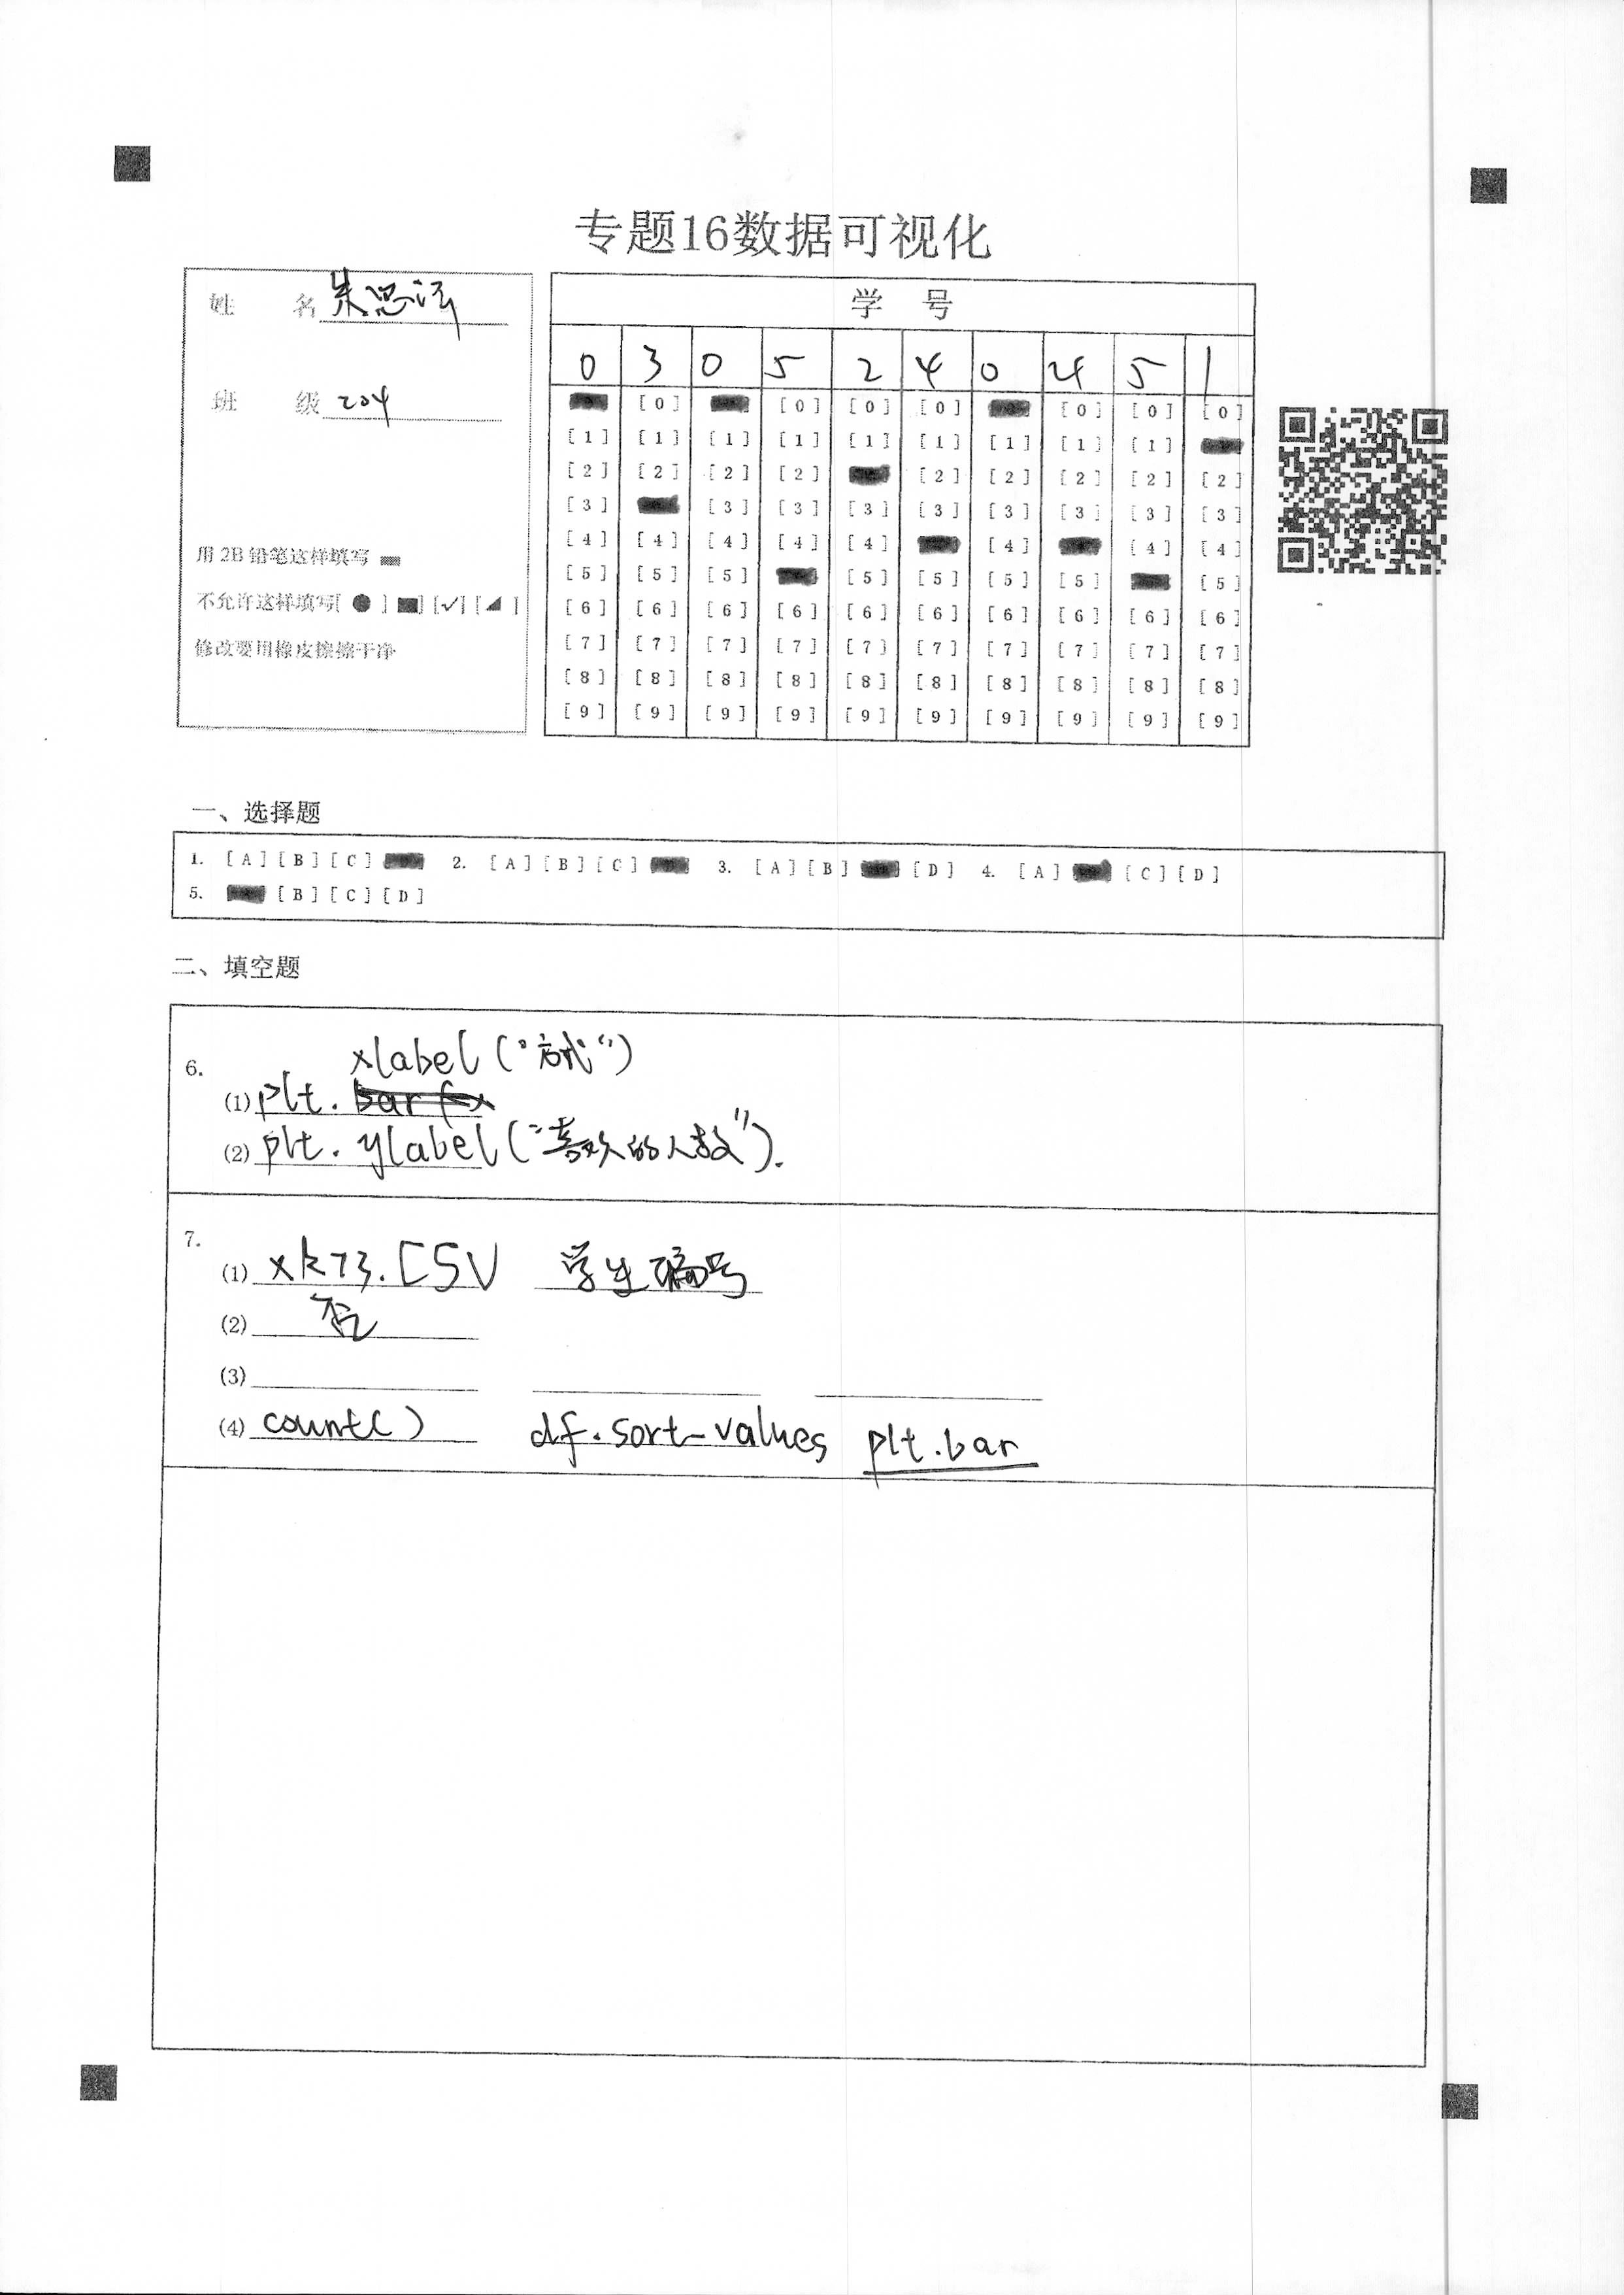 专题16数据可视化
姓 名 朱思
班 级 204
用 2B 铅笔这样填写
不允许这样填写[ ● ] ■] [✓] [◢ ]
修改要用橡皮擦擦干净
学 号
0 3 0 5 2 4 0 4 5 1
[0] [0] [0] [0] [0] [0] [0]
[1] [1] [1] [1] [1] [1] [1] [1] [1]
[2] [2] [2] [2] [2] [2] [2] [2] [2]
[3] [3] [3] [3] [3] [3] [3] [3] [3]
[4] [4] [4] [4] [4] [4] [4] [4]
[5] [5] [5] [5] [5] [5] [5] [5]
[6] [6] [6] [6] [6] [6] [6] [6] [6] [6]
[7] [7] [7] [7] [7] [7] [7] [7] [7] [7]
[8] [8] [8] [8] [8] [8] [8] [8] [8] [8]
[9] [9] [9] [9] [9] [9] [9] [9] [9] [9]
一、选择题
1. [A] [B] [C] 2. [A] [B] [C] 3. [A] [B] [D] 4. [A] [C] [D]
5. [B] [C] [D]
二、填空题
6.
xlabel("方式")
(1) plt.
(2) plt. ylabel("喜欢的人数").
7.
(1) xk73.CSV 学生编号
(2) 否
(3)
(4) count() df.sort-values plt.bar